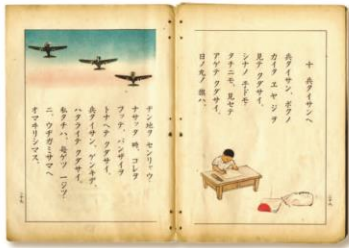 十 兵タイサンヘ
兵タイサン、ボクノ
カイタ エ ヤ ジヲ
見テ クダサイ。
シナノ コドモ
タチニモ、見セテ
アゲテ クダサイ。
日ノ丸ノ 旗ハ、
テキ地ヲ センリャウ
ナサッタ 時、コレヲ
フッテ、バンザイヲ
トナヘテ クダサイ。
兵タイサン、ゲンキデ、
ハタライテ クダサイ。
私タチハ、毎ゲツ 一ジツ
ニ、ウヂガミサマヘ
オマヰリシマス。